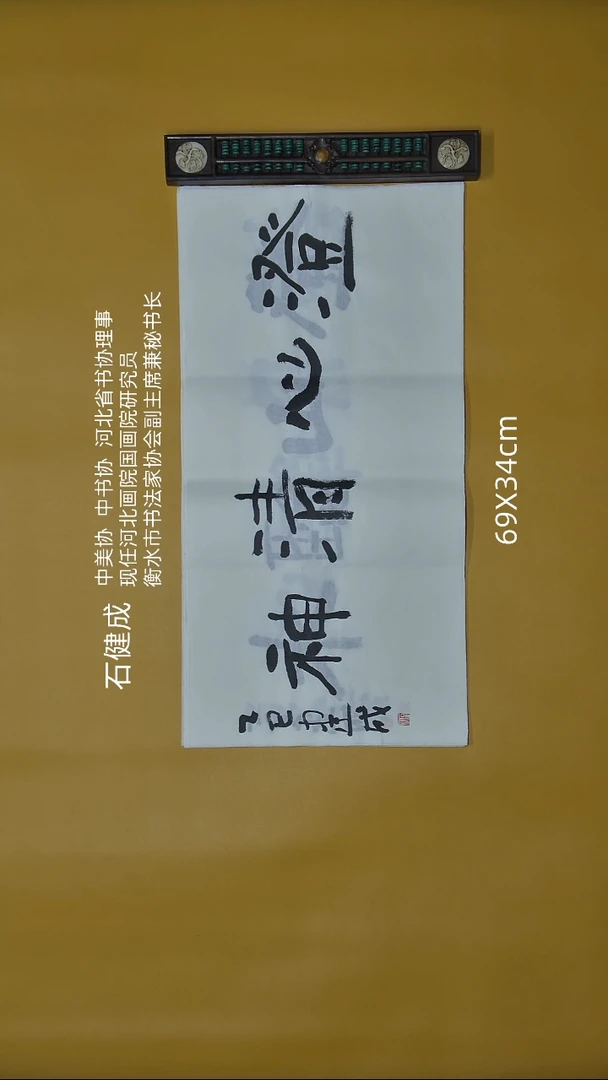 石健成
中美协 中书协 河北省书协理事
现任河北画院国画院研究员
衡水市书法家协会副主席兼秘书长
澄心清神
乙巳 健成
69X34cm